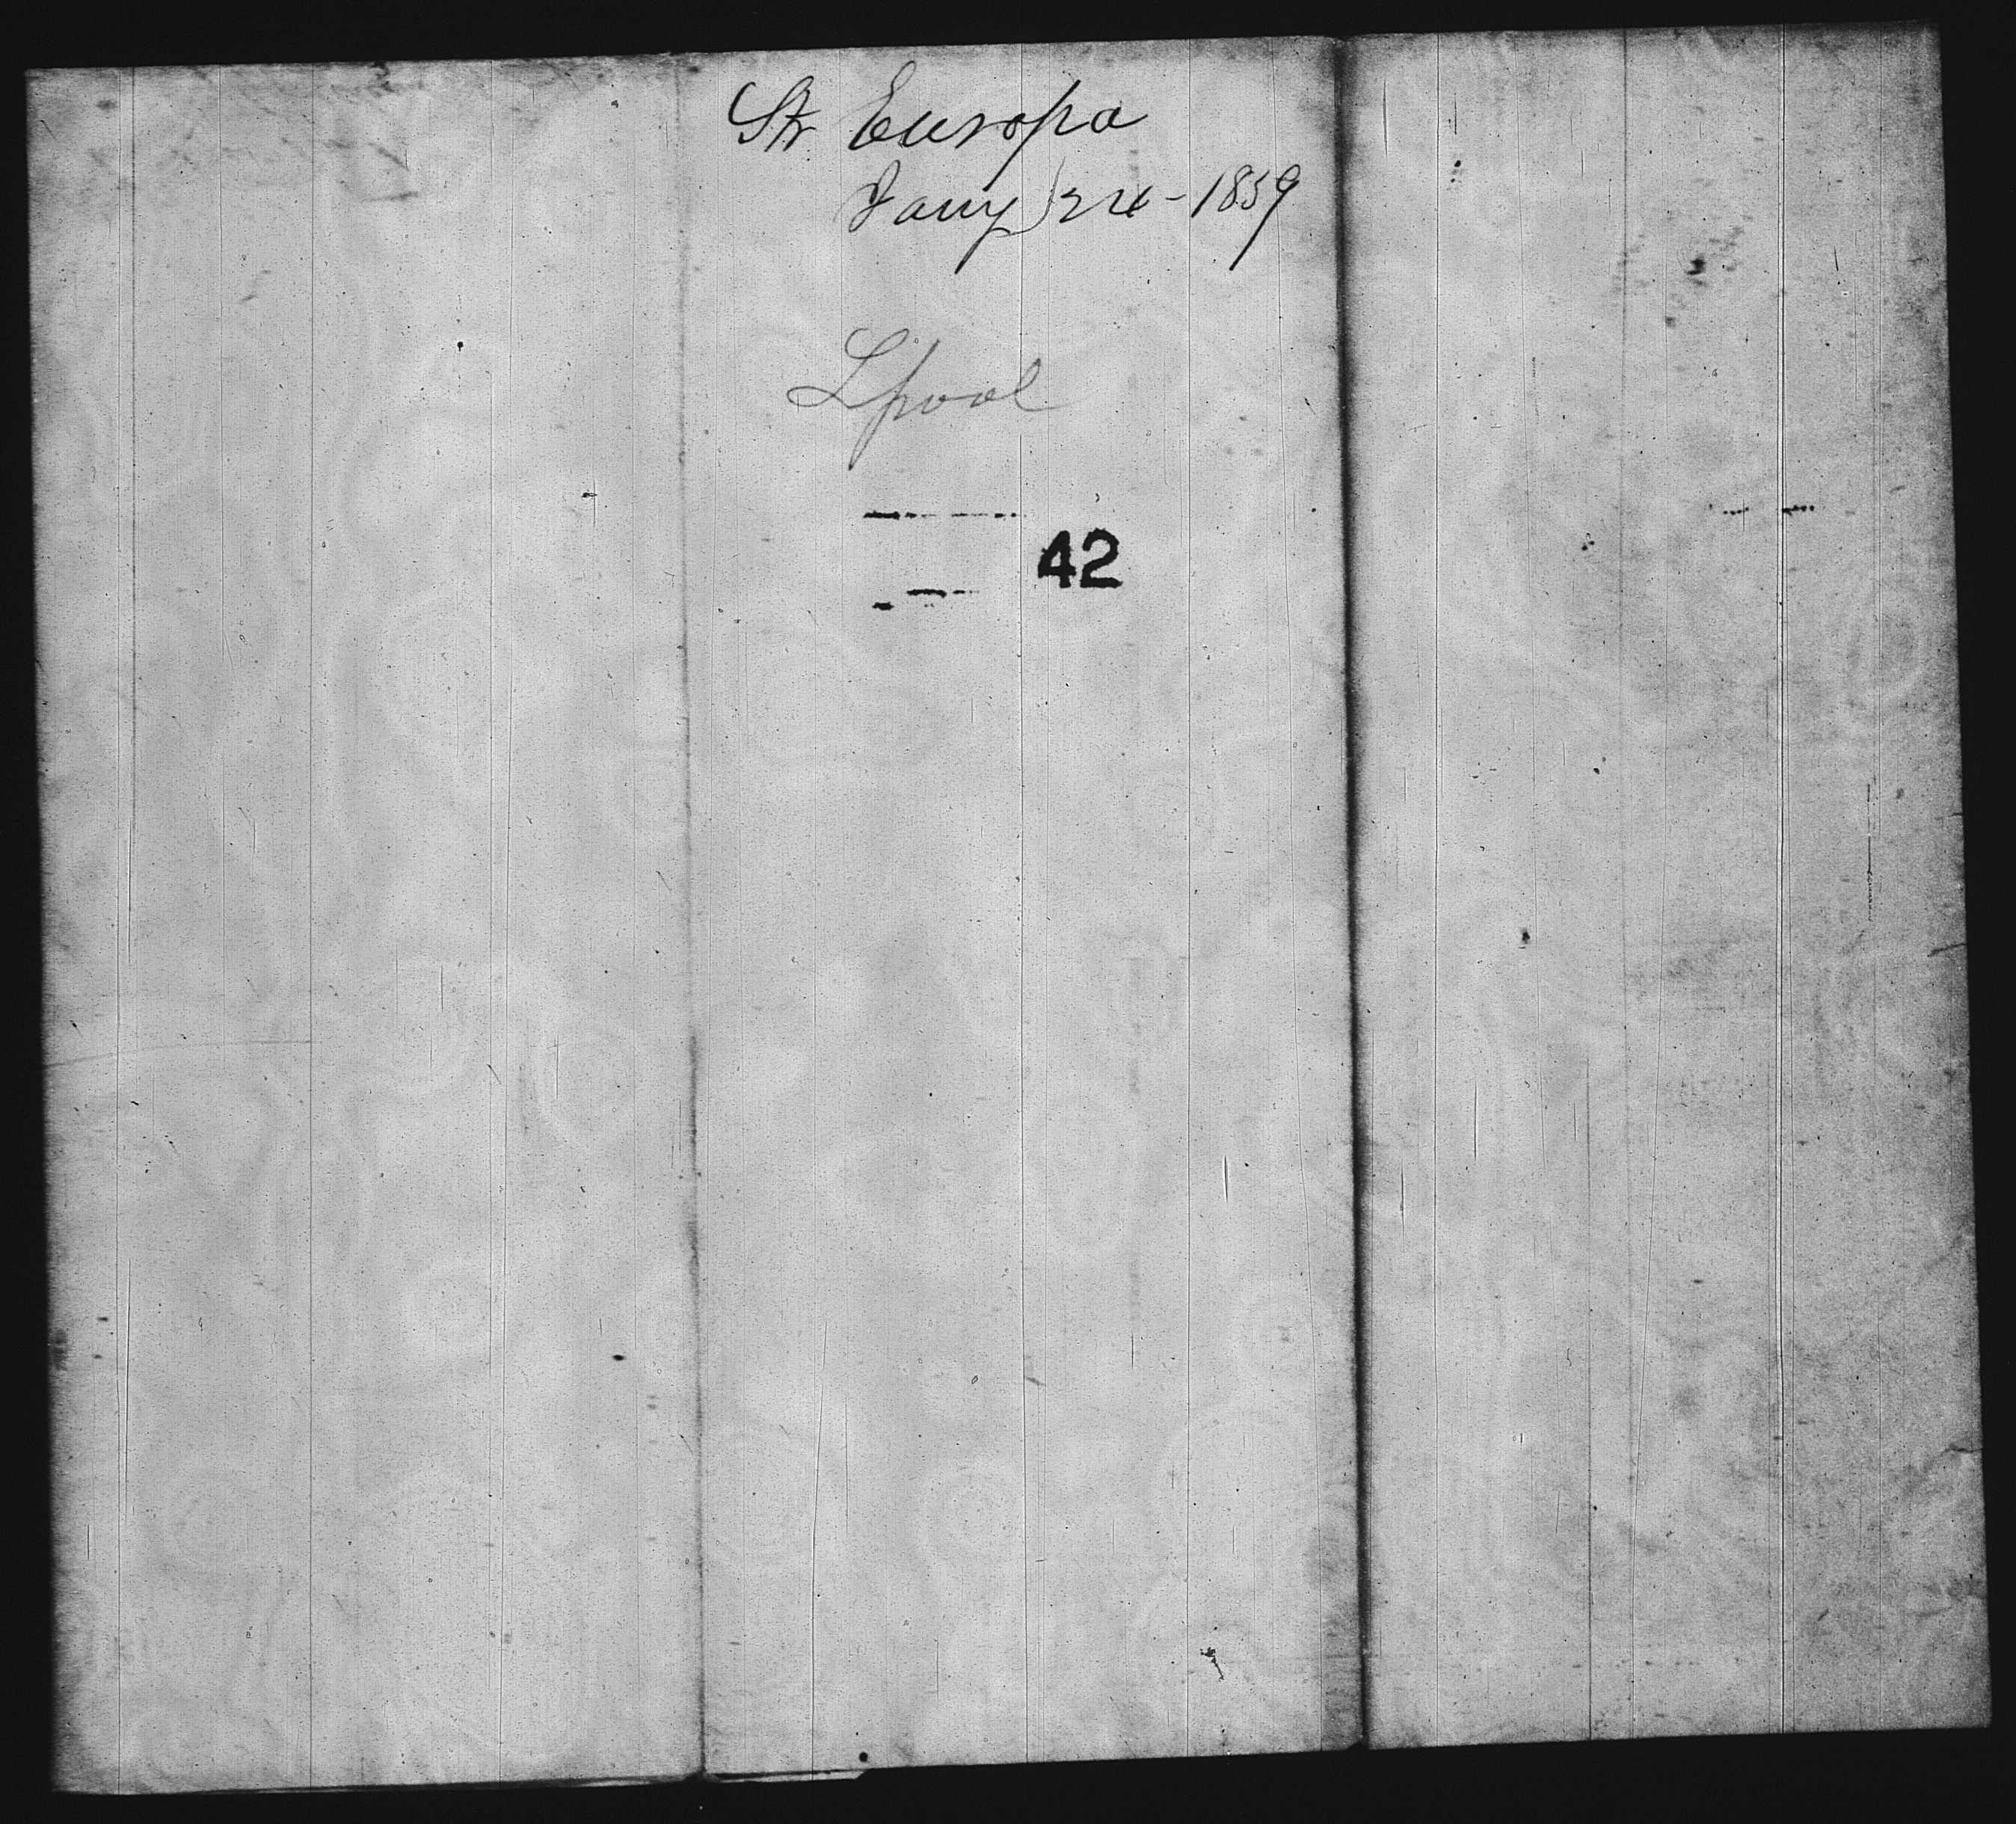 Str Europa
Jany 24 - 1859
Lpool
42